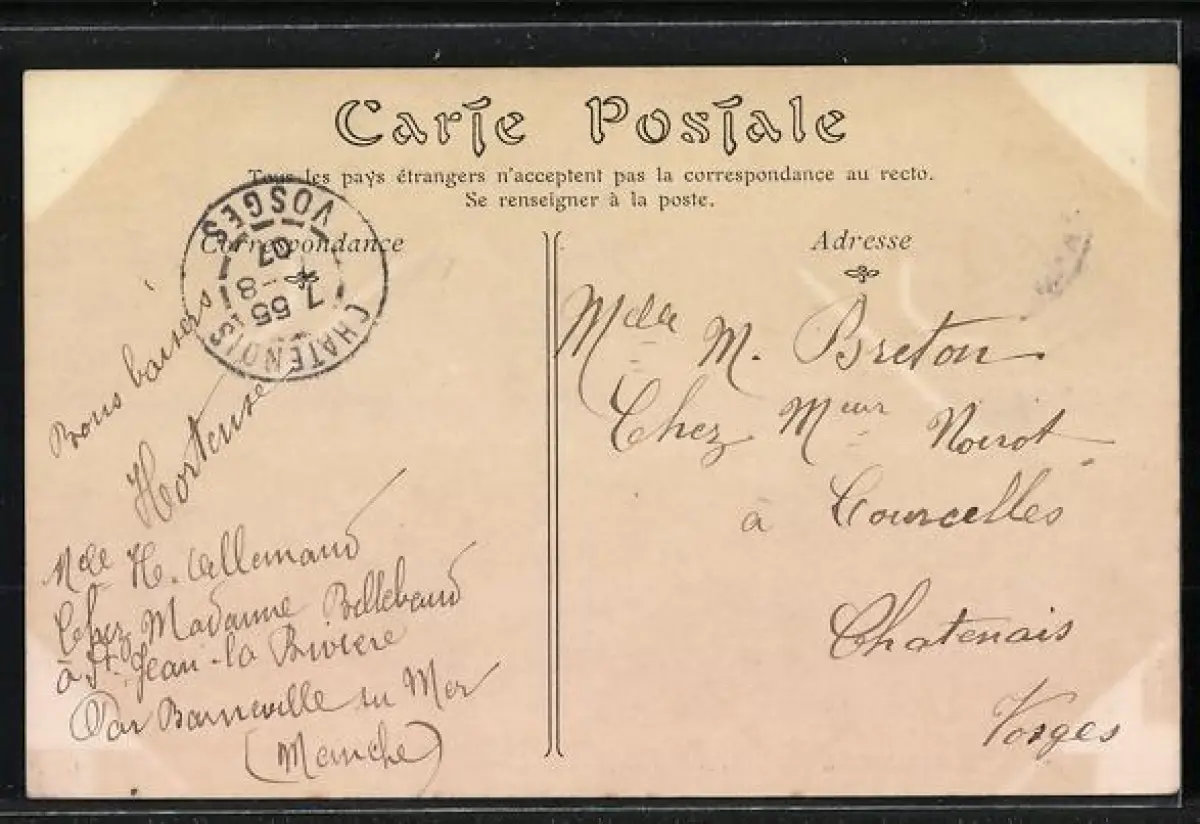 Carte Postale
Tous les pays étrangers n'acceptent pas la correspondance au recto.
Se renseigner à la poste.
Correspondance
Adresse
CHATENOIS
7 55
8-
07
VOSGES
Bons baisers
Hortense
Mde H. Lallemand
Chez Madame Bellebaud
à St. Jean-la Rivière
Par Barneville su Mer
(Manche)
Melle M. Breton
Chez Meur Noirot
à Courcelles
Chatenais
Vosges